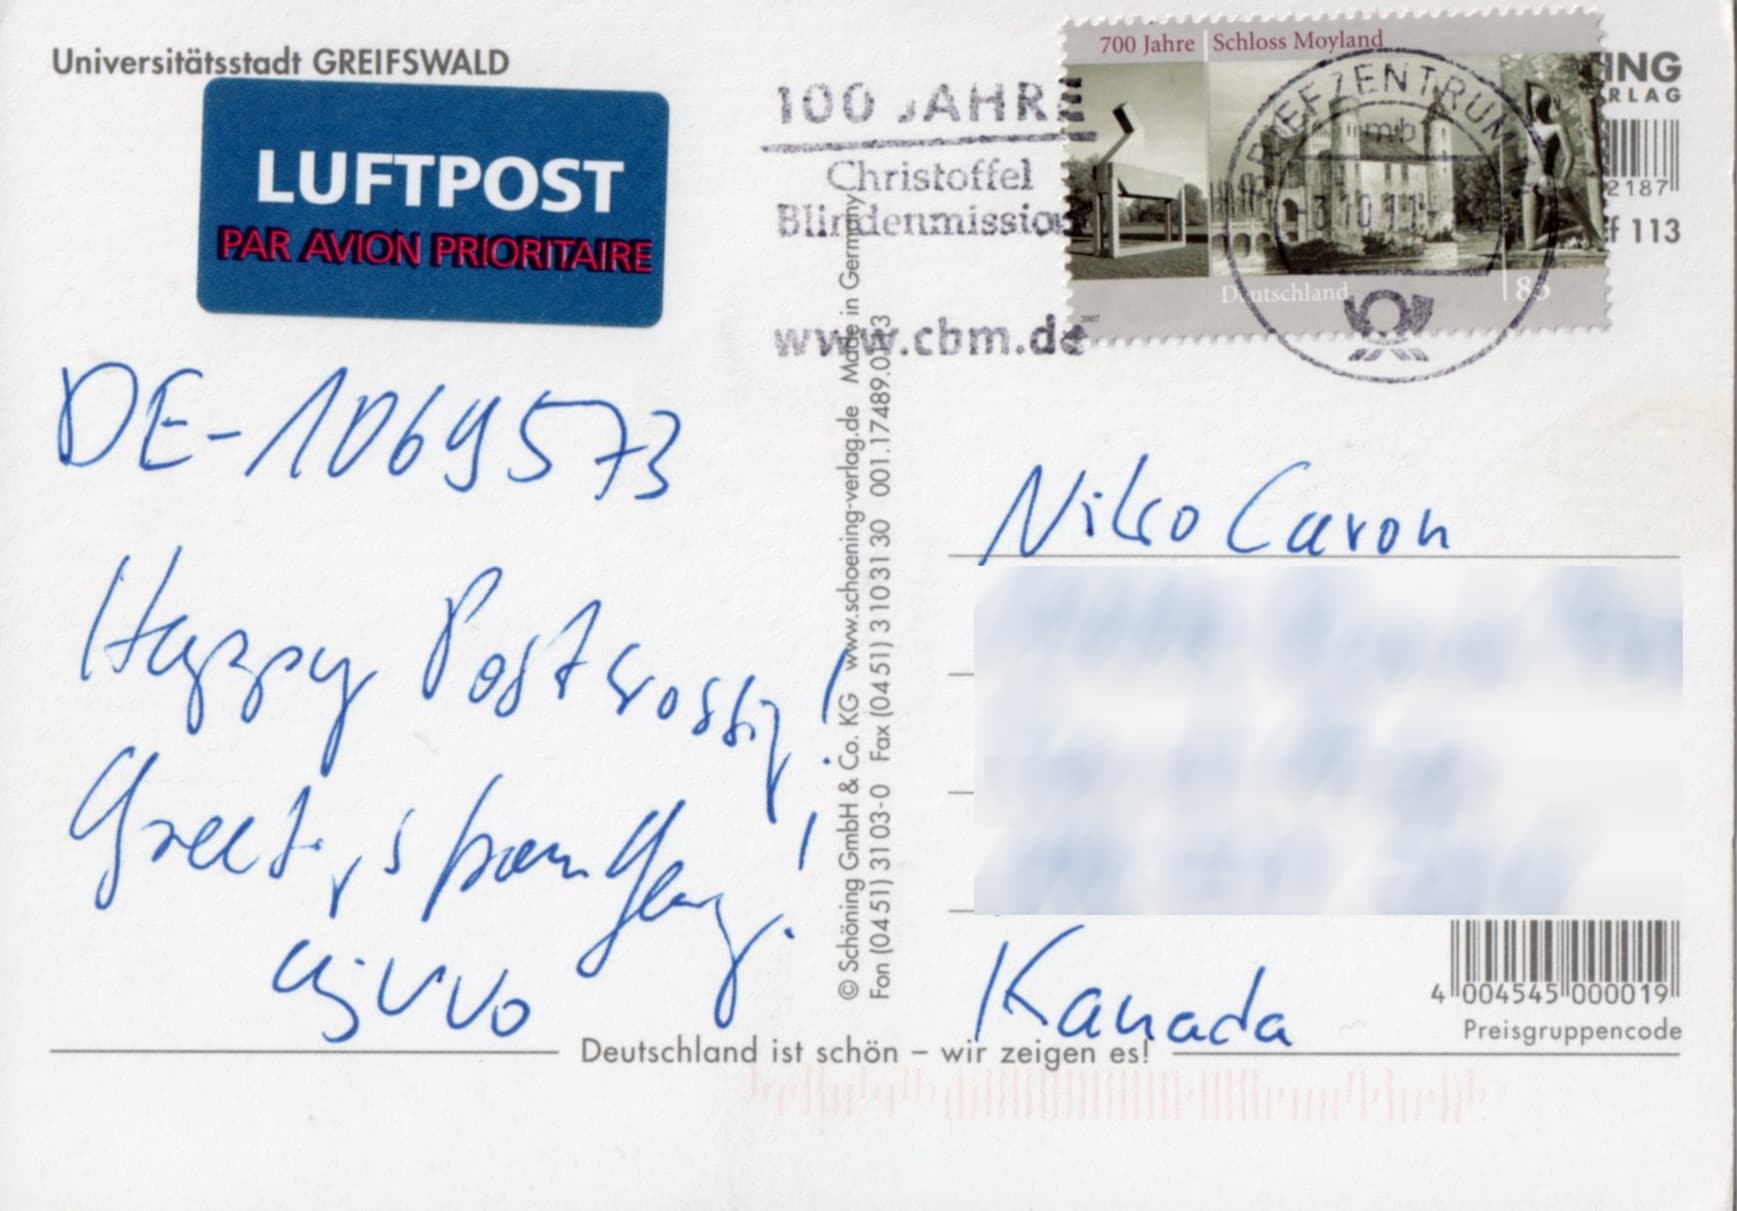 Universitätsstadt GREIFSWALD
LUFTPOST
PAR AVION PRIORITAIRE
100 JAHRE
Christoffel
Blindenmission
www.cbm.de
700 Jahre | Schloss Moyland
Deutschland 85
2007
BRIEFZENTRUM
mb
ING
RLAG
2187
f 113
DE-1069573
Happy Postcrossing!
Greetings from Germany!
Niko Caron
Kanada
© Schöning GmbH & Co. KG www.schoening-verlag.de Made in Germany
Fon (04 51) 31 03-0 Fax (04 51) 3 10 31 30 001.17489.01.13
4 004545 000019
Preisgruppencode
Deutschland ist schön – wir zeigen es!